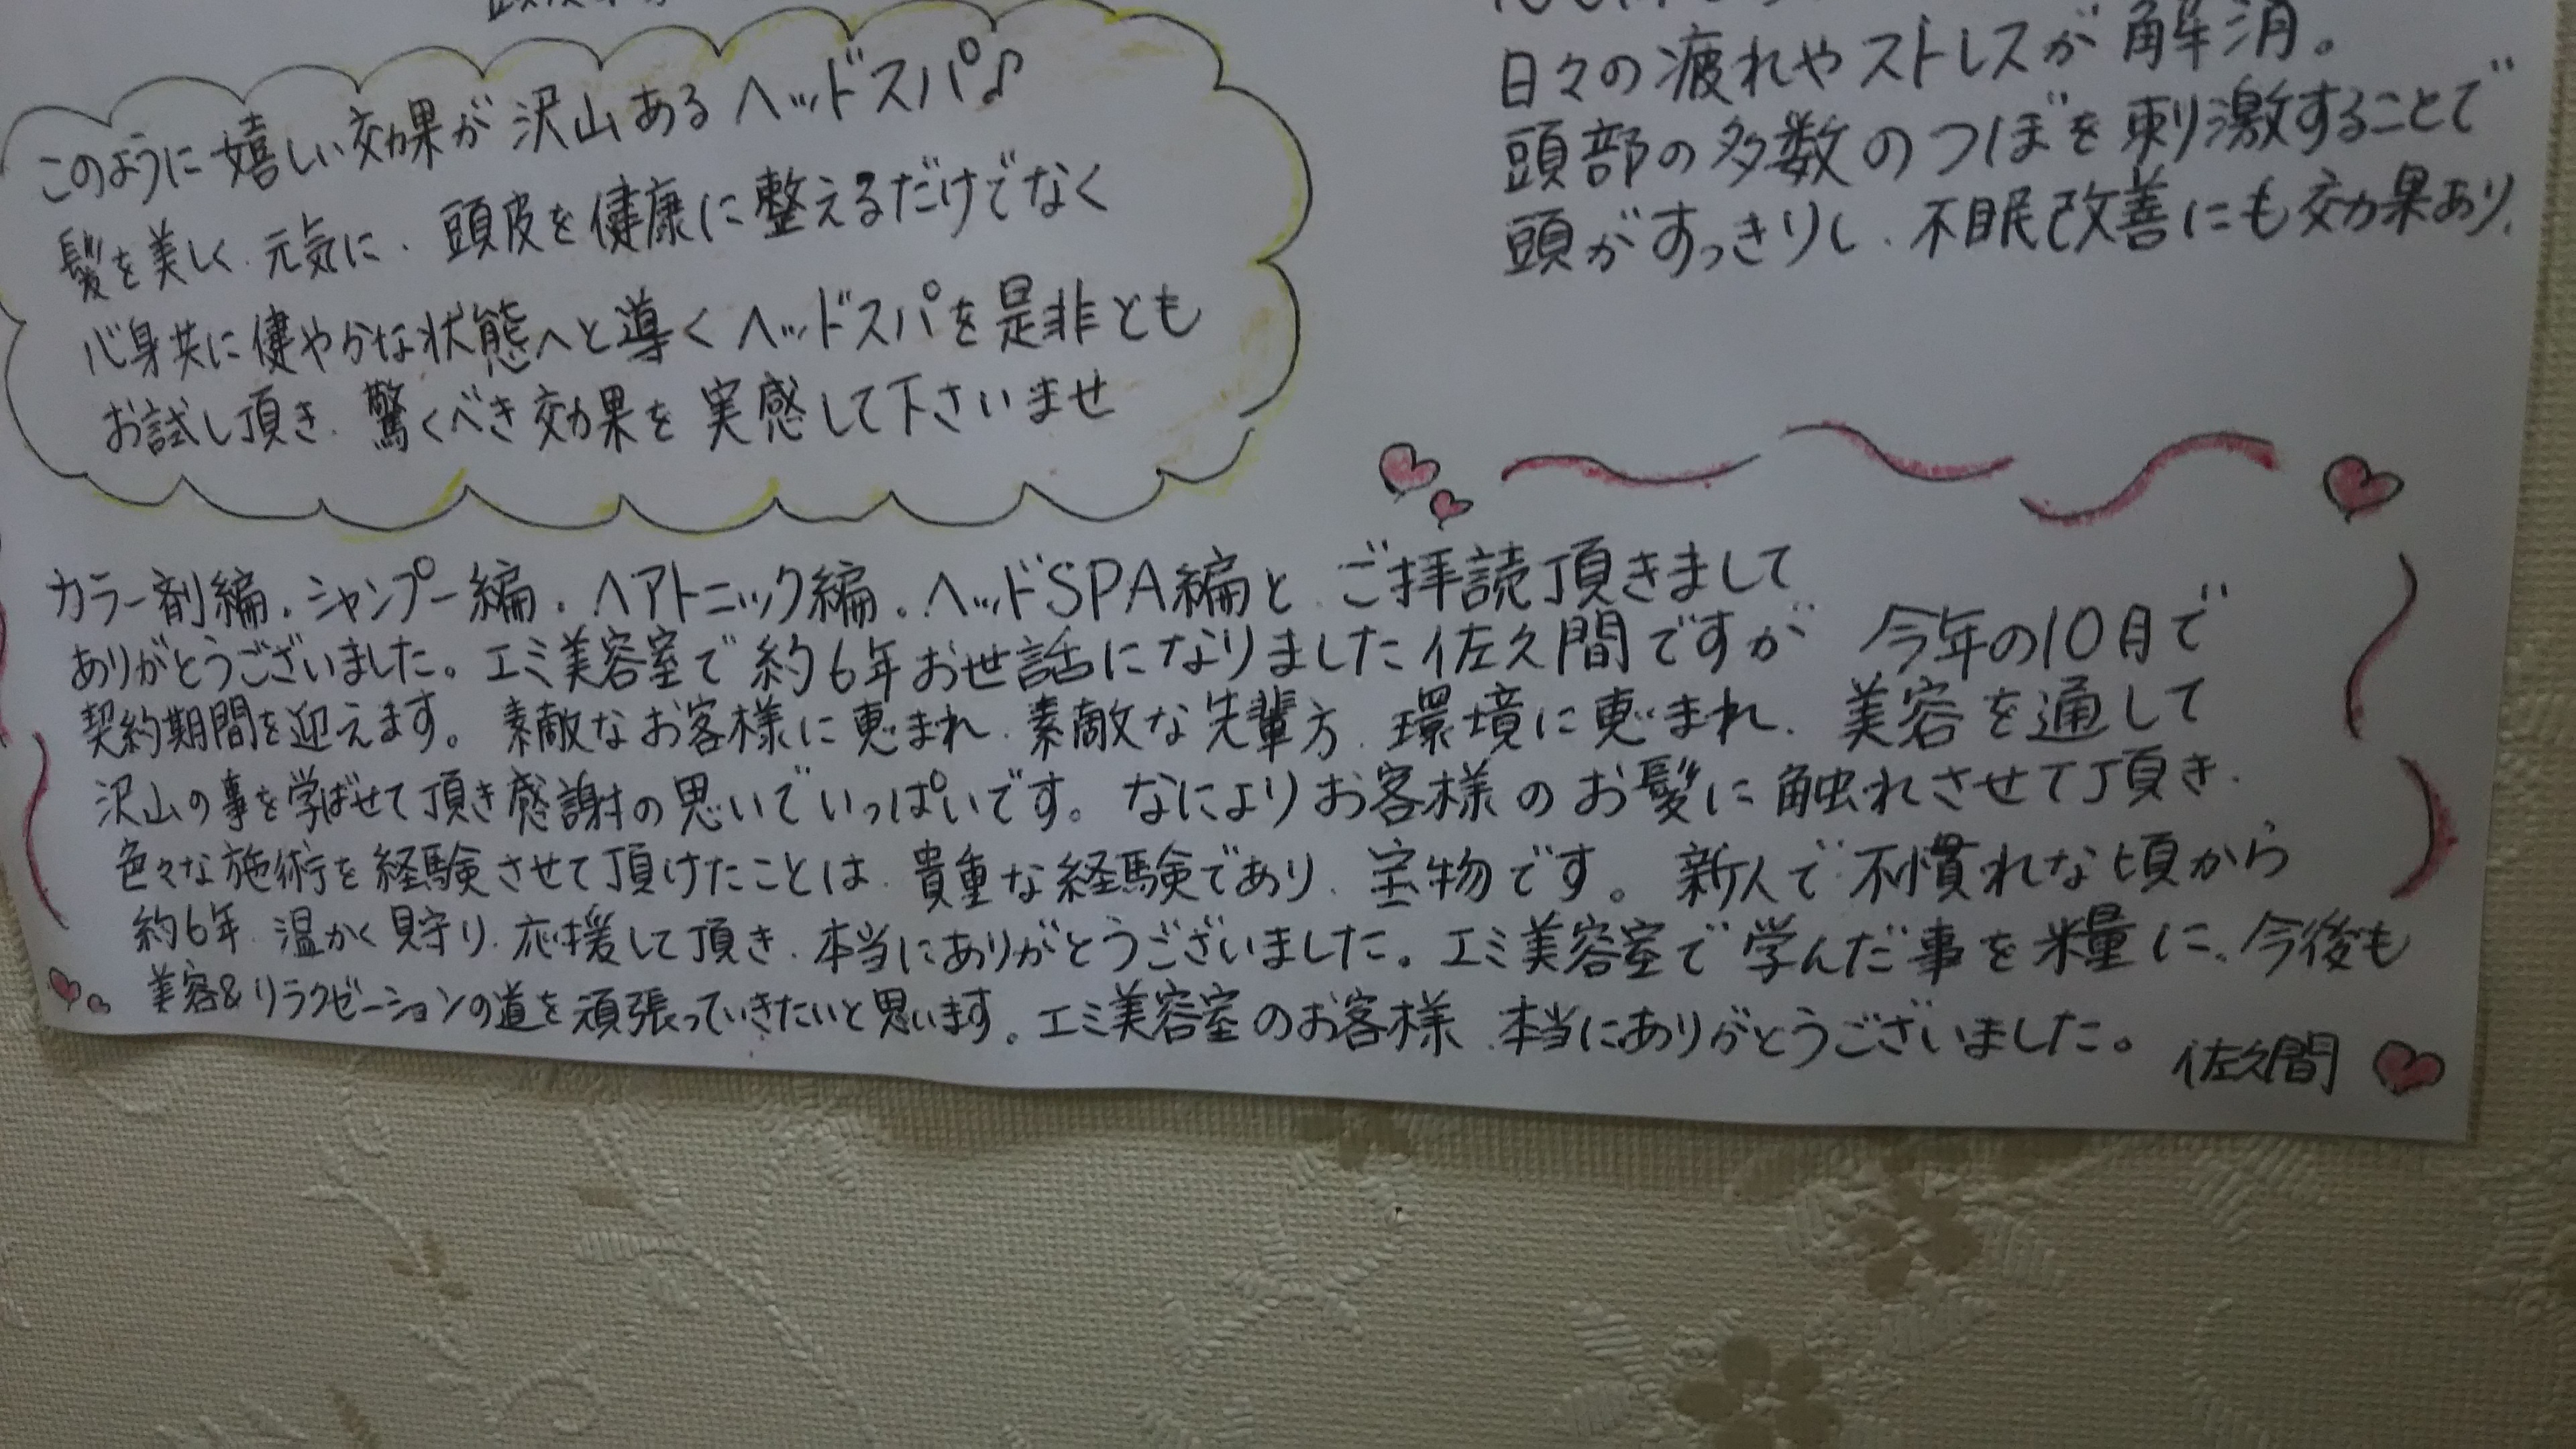 このように嬉しい効果が沢山あるヘッドスパ♪
髪を美しく、元気に、頭皮を健康に整えるだけでなく
心身共に健やかな状態へと導くヘッドスパを是非とも
お試し頂き、驚くべき効果を実感して下さいませ
日々の疲れやストレスが解消。
頭部の多数のつぼを刺激することで
頭がすっきりし、不眠改善にも効果あり、
カラー剤編、シャンプー編、ヘアトニック編、ヘッドSPA編と、ご拝読頂きまして
ありがとうございました。エミ美容室で約6年お世話になりました佐久間ですが 今年の10月で
契約期間を迎えます。素敵なお客様に恵まれ、素敵な先輩方、環境に恵まれ、美容を通して
沢山の事を学ばせて頂き感謝の思いでいっぱいです。なによりお客様のお髪に触れさせて頂き、
色々な施術を経験させて頂けたことは、貴重な経験であり、宝物です。新人で不慣れな頃から
約6年、温かく見守り、応援して頂き、本当にありがとうございました。エミ美容室で学んだ事を糧に、今後も
美容&リラクゼーションの道を頑張っていきたいと思います。エミ美容室のお客様、本当にありがとうございました。
佐久間